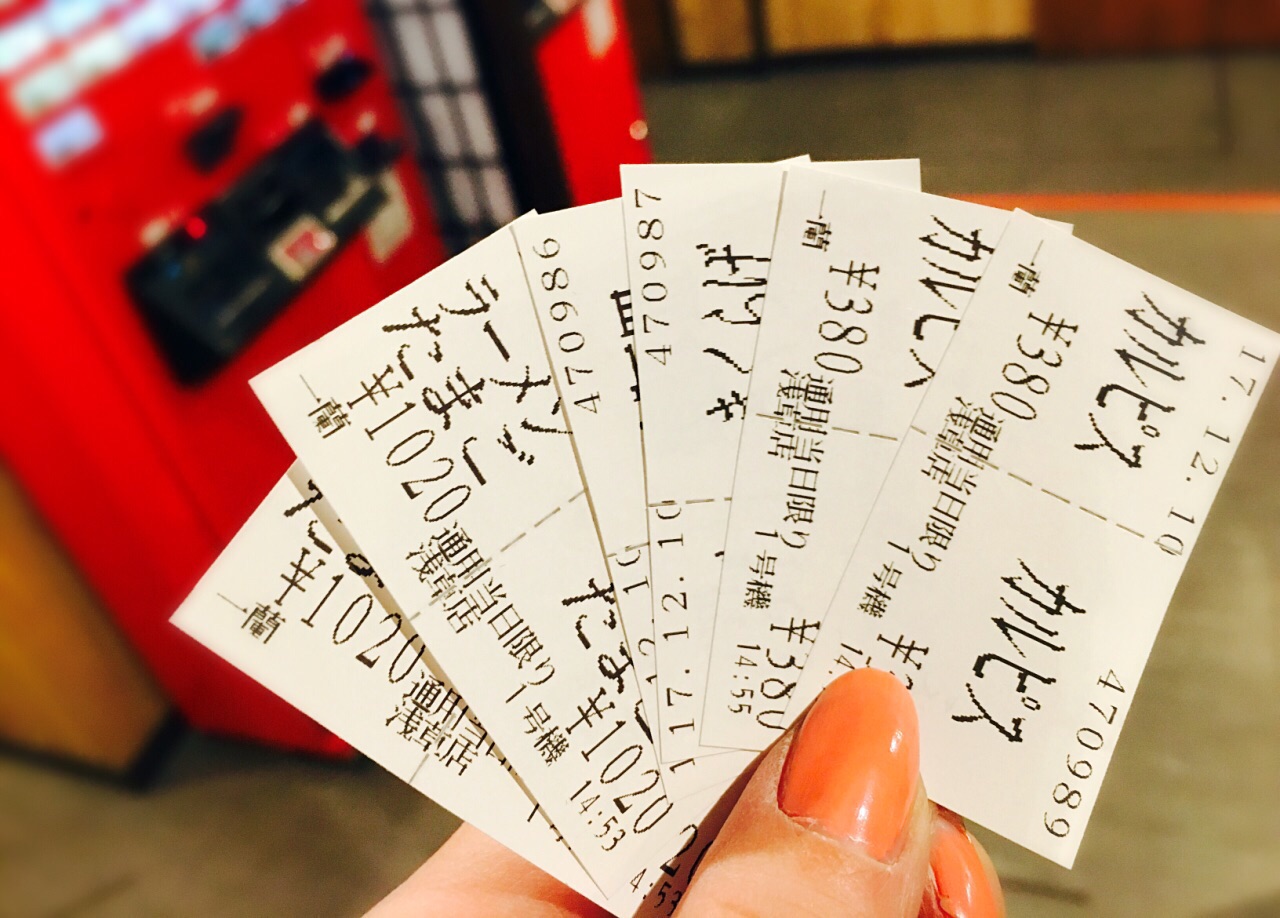 一蘭
¥1020
浅草店
ラーメン
たまご
¥1020
一蘭
通用当日限り
浅草店
1号機
14:53
¥1020
470986
470987
17.12.10
カルピス
¥380
一蘭
通用当日限り
浅草店
1号機
14:55
¥380
カルピス
¥380
一蘭
通用当日限り
浅草店
1号機
17.12.10
カルピス
470989